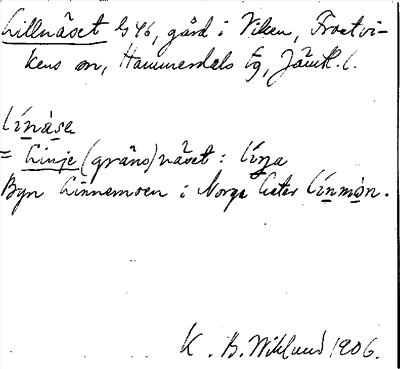 Lillnäset G 46, gård i Viken, Frostvi-
kens sn, Hammerdals tg, Jämtl. l.
Línása
= Linje (gräns) näset: línja
Byn Linnemoen i Norge heter Línmòn.
K. B. Wiklund 1906.